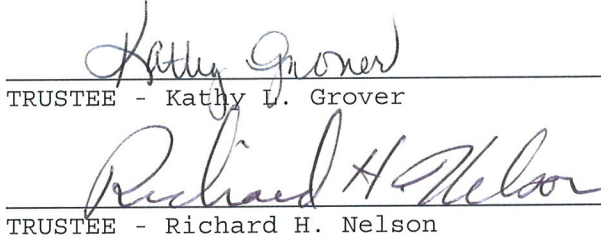 Kathy Grover
TRUSTEE - Kathy L. Grover
Richard H. Nelson
TRUSTEE - Richard H. Nelson